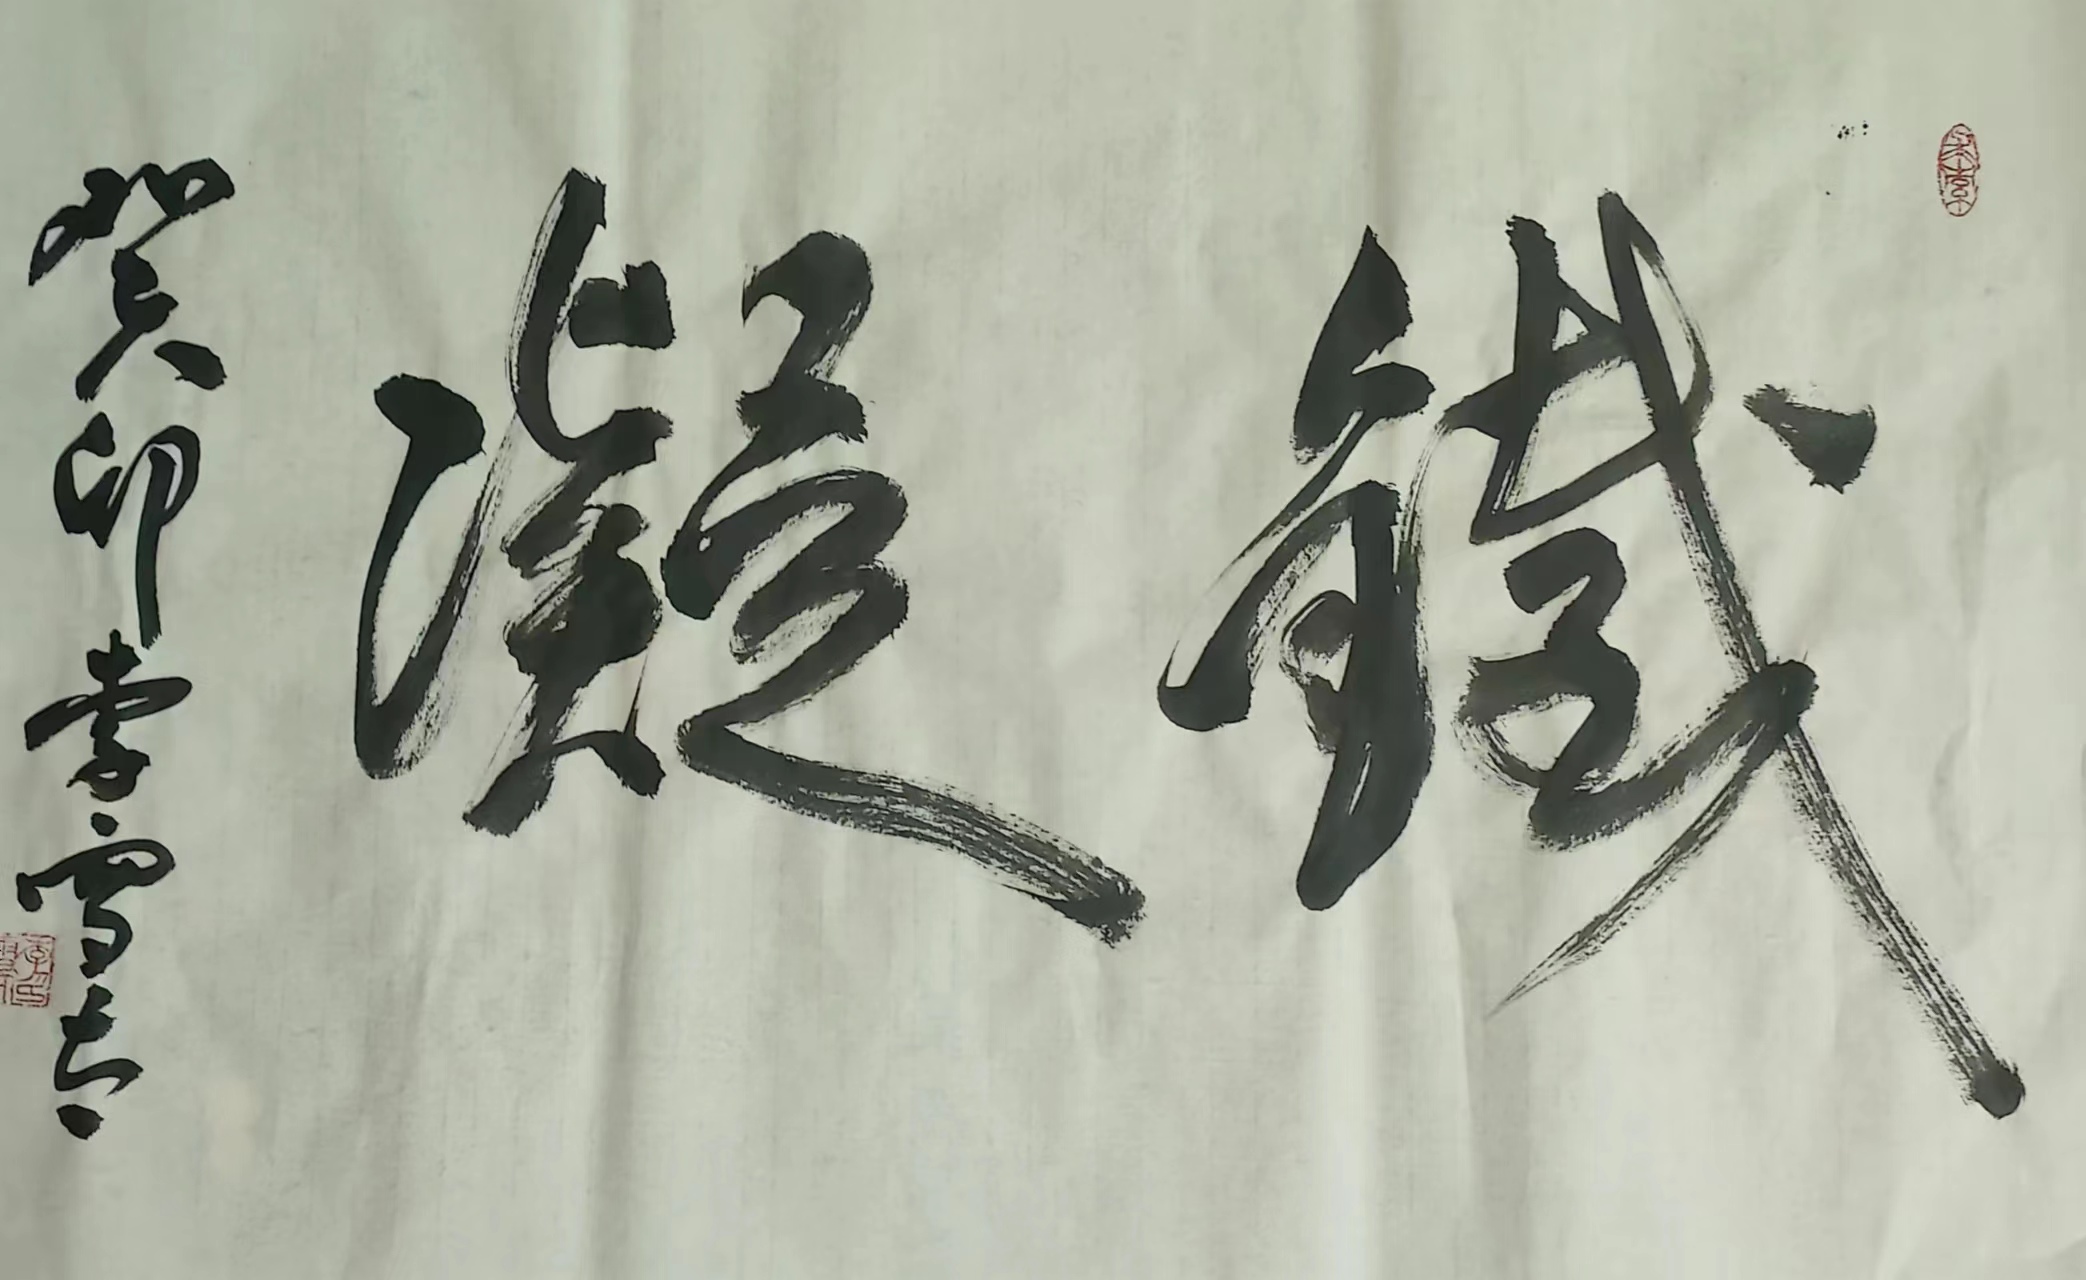 鐵凝
癸卯李雪